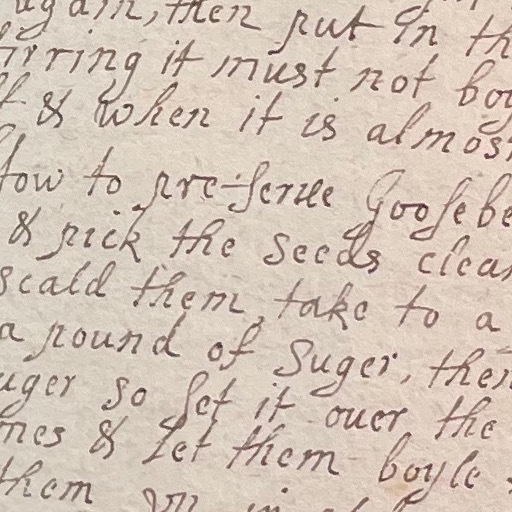 again, then put in th
irring it must not boy
& when it is almos
How to pre-serue Goosebe
& pick the seeds clear
scald them, take to a
a pound of Suger, then
uger so set it ouer the
nes & Let them boyle
them